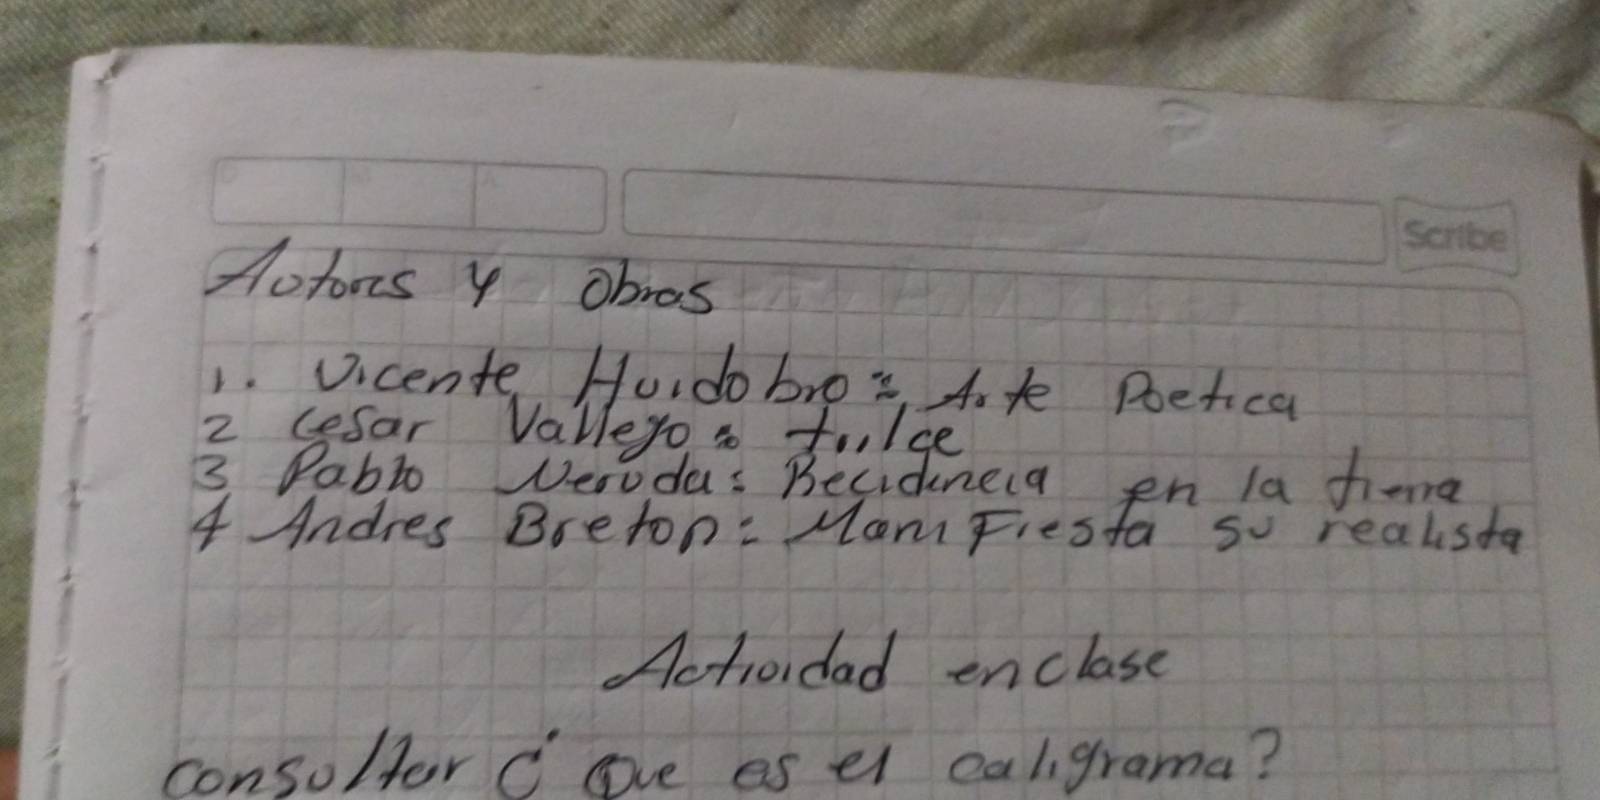 Scribe
Autores y Obras
1. Vicente Huidobro: Arte Poetica
2 Cesar Vallejo: trilce
3 Pablo Neruda: Recidencia en la tierra
4 Andres Breton: ManiFiesta su realista
Actividad en clase
consultar ¿ Que es el caligrama?